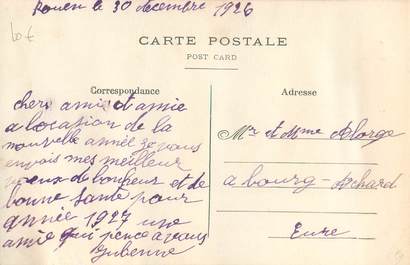 Rouen le 30 decembre 1926
10€
CARTE POSTALE
POST CARD
Correspondance
chers amis et amie
a locasion de la
nouvelle année je vous
envois mes meilleur
voeux de bonheur et de
bonne santé pour
année 1927 une
amie qui pence a vous
Adresse
Mr et Mme Alorge
a bourg-Achard
Eure